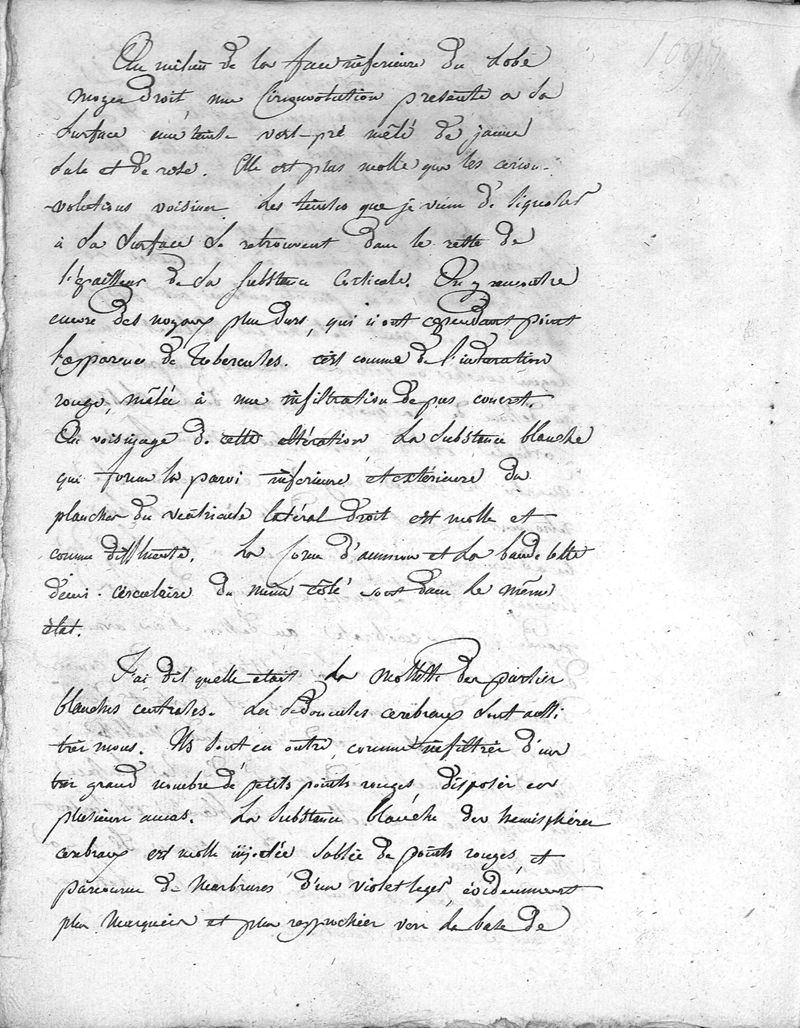 Au milieu de la face inférieure du lobe
moyen droit une Circonvolution présente a sa
surface une teinte vert-pré mêlé de jaune
sale et de rose. Elle est plus molle que les circon-
volutions voisines. Les teintes que je viens de signaler
à sa surface se retrouvent dans le reste de
l'épaisseur de sa substance corticale. On y rencontre
encore des noyaux plus durs, qui n'ont cependant point
l'apparence de Tubercules. c'est comme de l'induration
rouge, mêlée à une infiltration de pus concret.
Au voisinage de cette altération la substance blanche
qui forme la paroi inférieure et extérieure du
plancher du ventricule latéral droit est molle et
comme diffluente. La Corne d'ammon et la bandelette
demi-circulaire du même côté sont dans le même
état.
J'ai dit quelle était la mollesse des parties
blanches centrales. Les Pédoncules cérébraux sont aussi
très mous. Ils sont en outre, comme infiltrés d'un
très grand nombre de petits points rouges, disposés en
plusieurs amas. La substance blanche des hémisphères
cérébraux est molle injectée sablée de points rouges, et
parcourue de Marbrures d'un violet léger évidemment
plus Marquées et plus rapprochées vers la base de